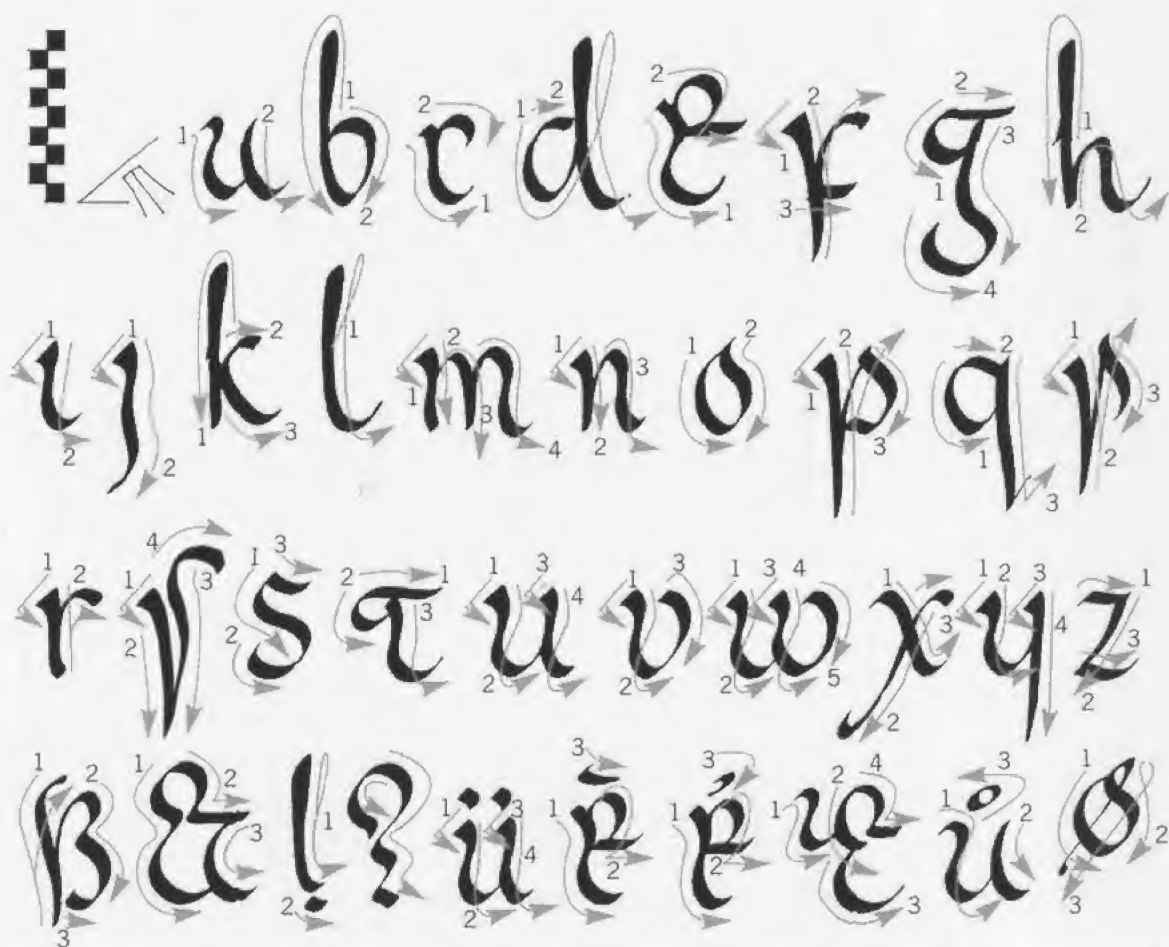 a b c d e f g h
i j k l m n o p q r
r ſ s t u v w x y z
ß & ! ? ü ē é æ å ø